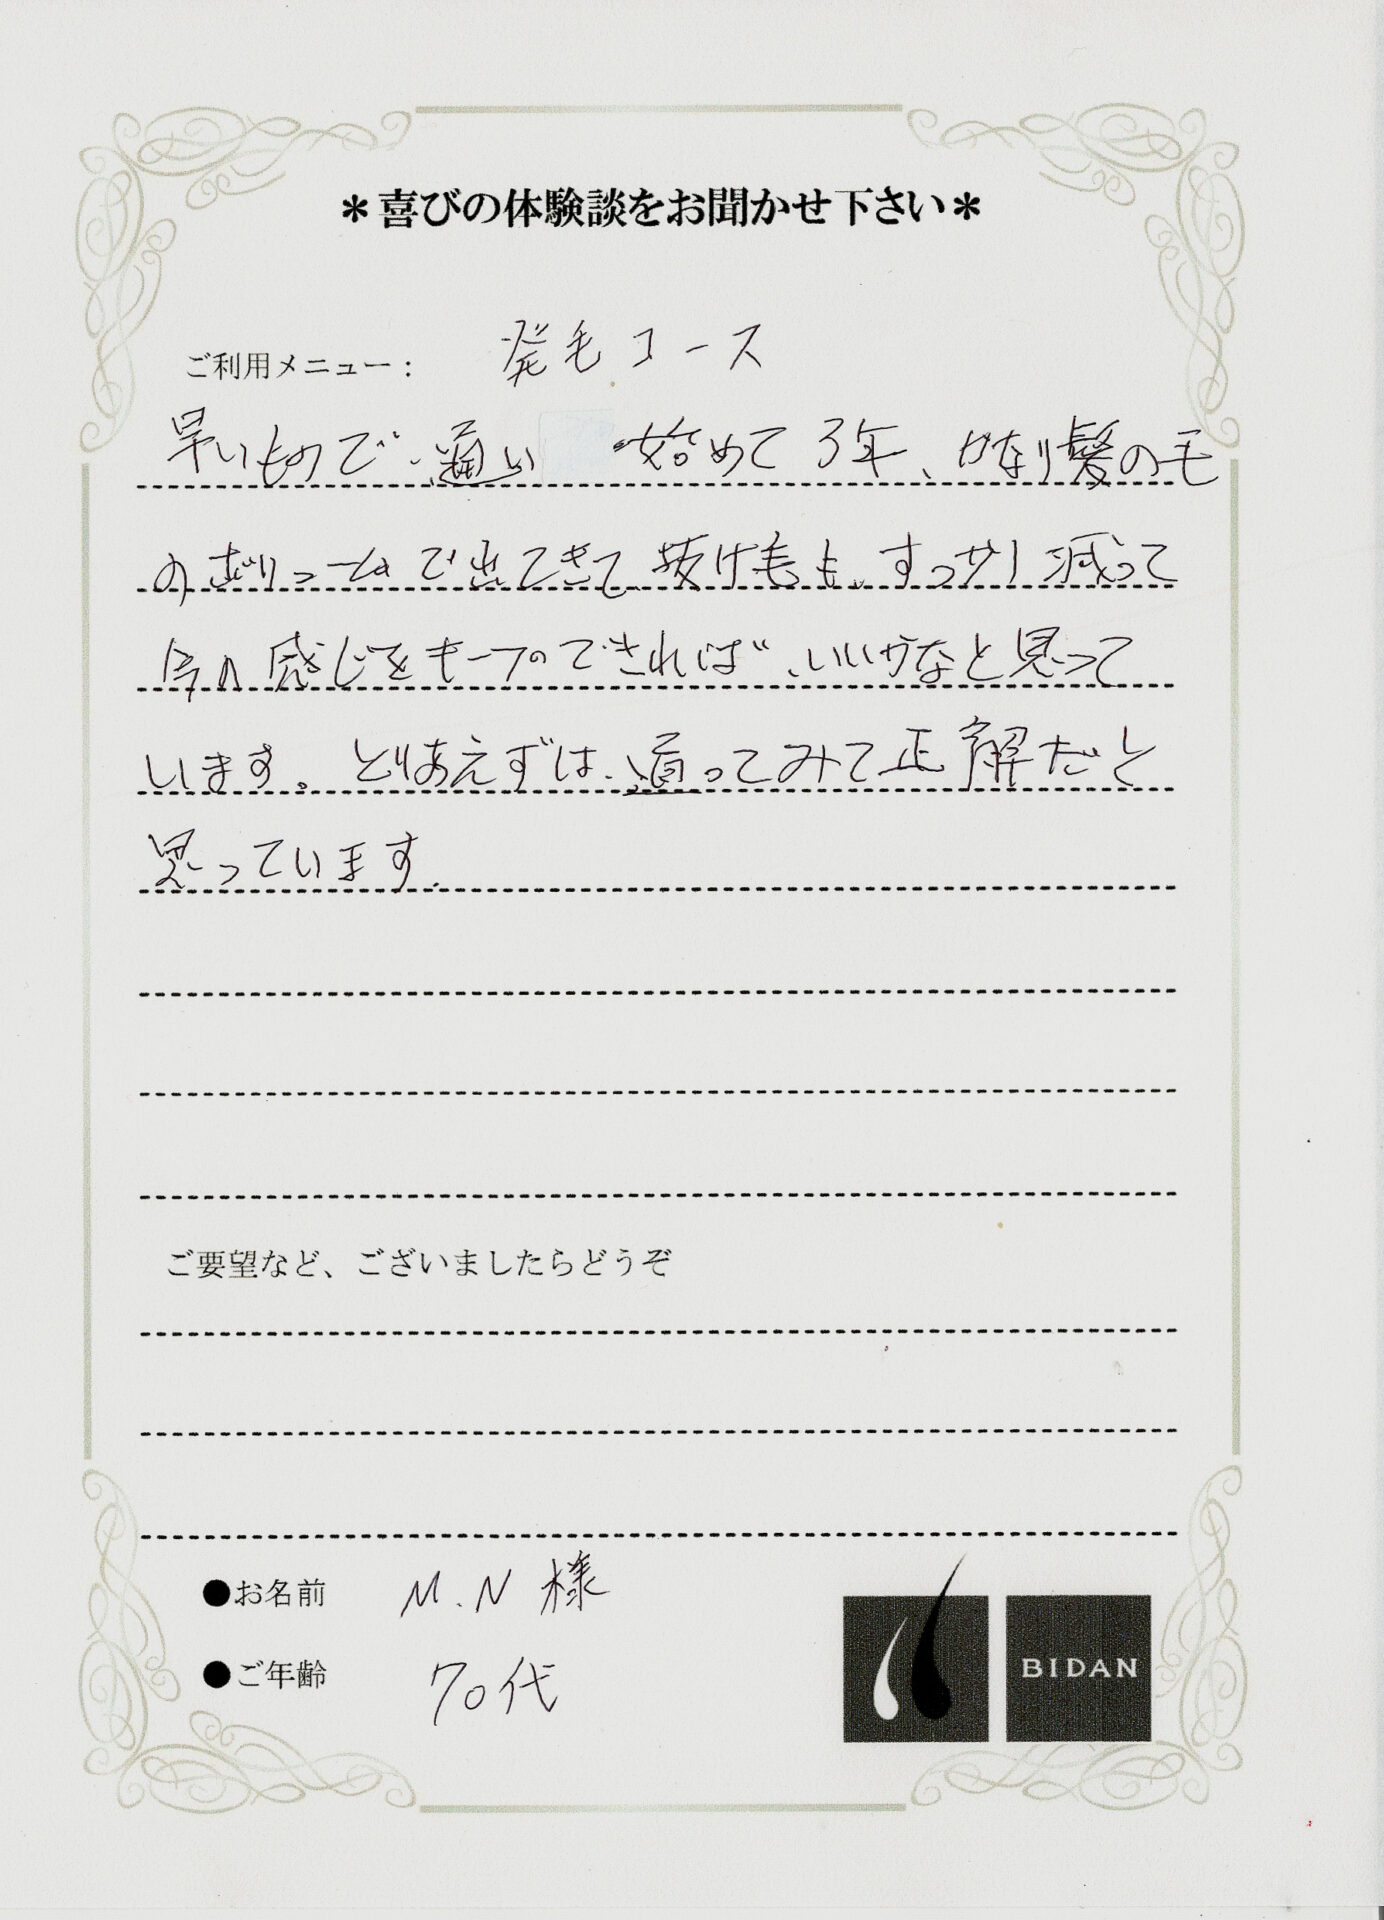 ＊喜びの体験談をお聞かせ下さい＊
ご利用メニュー： 発毛コース
早いもので、通い 始めて3年、かなり髪の毛
のボリュームも出てきて抜け毛も、すっかり減って
今の感じをキープできれば、いいかなと思って
います。とりあえずは、通ってみて正解だと
思っています。
ご要望など、ございましたらどうぞ
●お名前 M.N 様
●ご年齢 70代
BIDAN